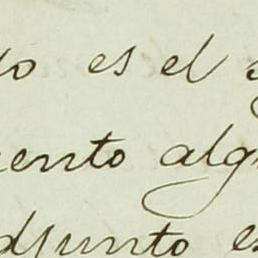 lo es el
ento alg
djunto es